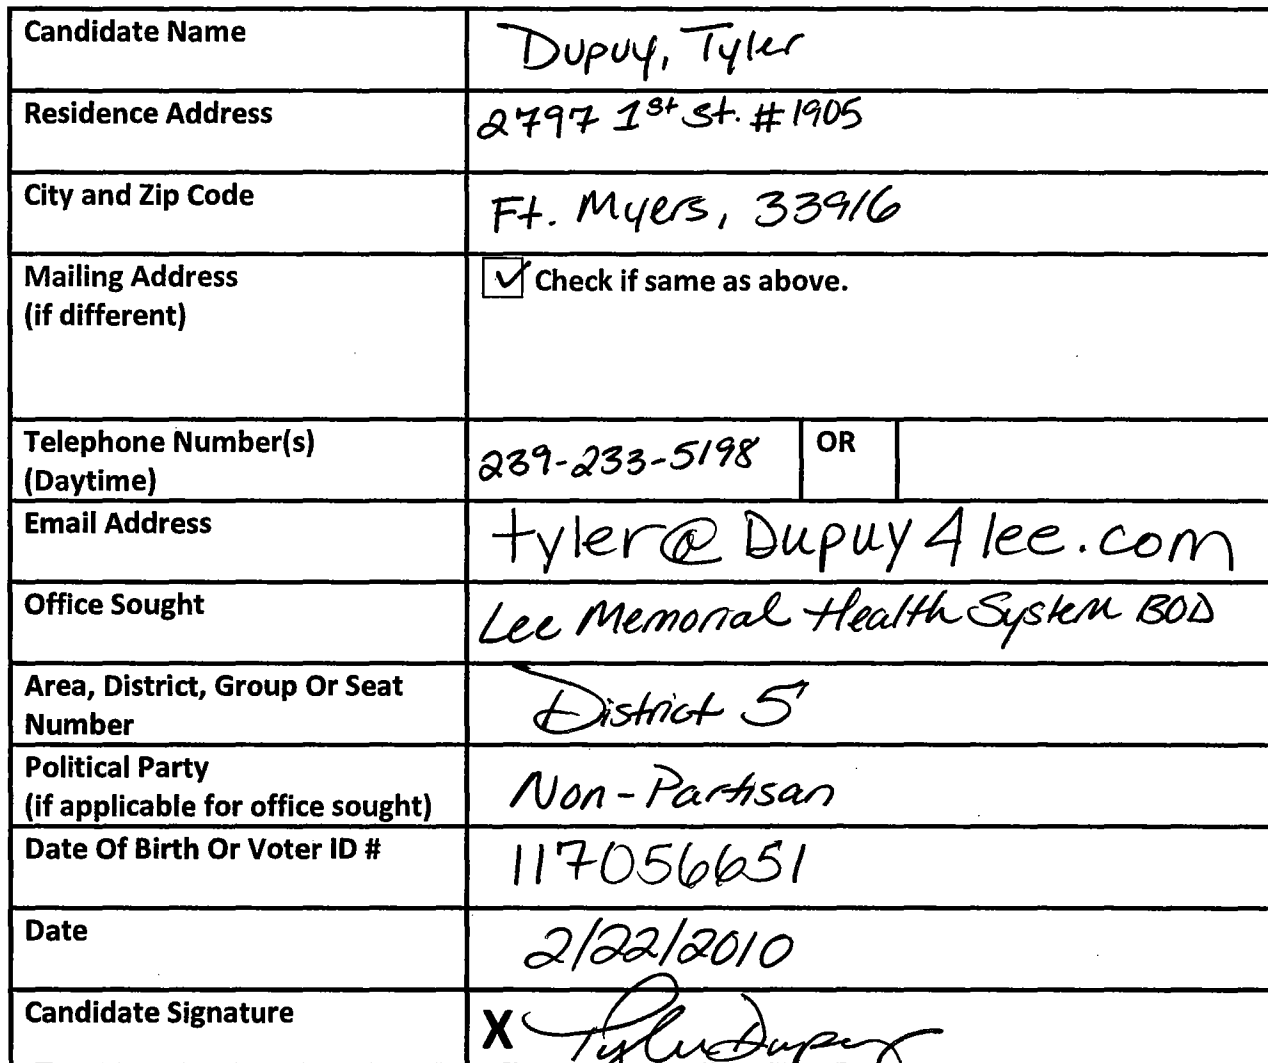 Candidate Name Dupuy, Tyler
Residence Address 2797 1st St. #1905
City and Zip Code Ft. Myers, 33916
Mailing Address
(if different)
☑ Check if same as above.
Telephone Number(s)
(Daytime)
239-233-5198 OR
Email Address tyler@Dupuy4lee.com
Office Sought Lee Memorial Health System BOD
Area, District, Group Or Seat
Number
District 5
Political Party
(if applicable for office sought)
Non-Partisan
Date Of Birth Or Voter ID # 117056651
Date 2/22/2010
Candidate Signature X Tyler Dupuy